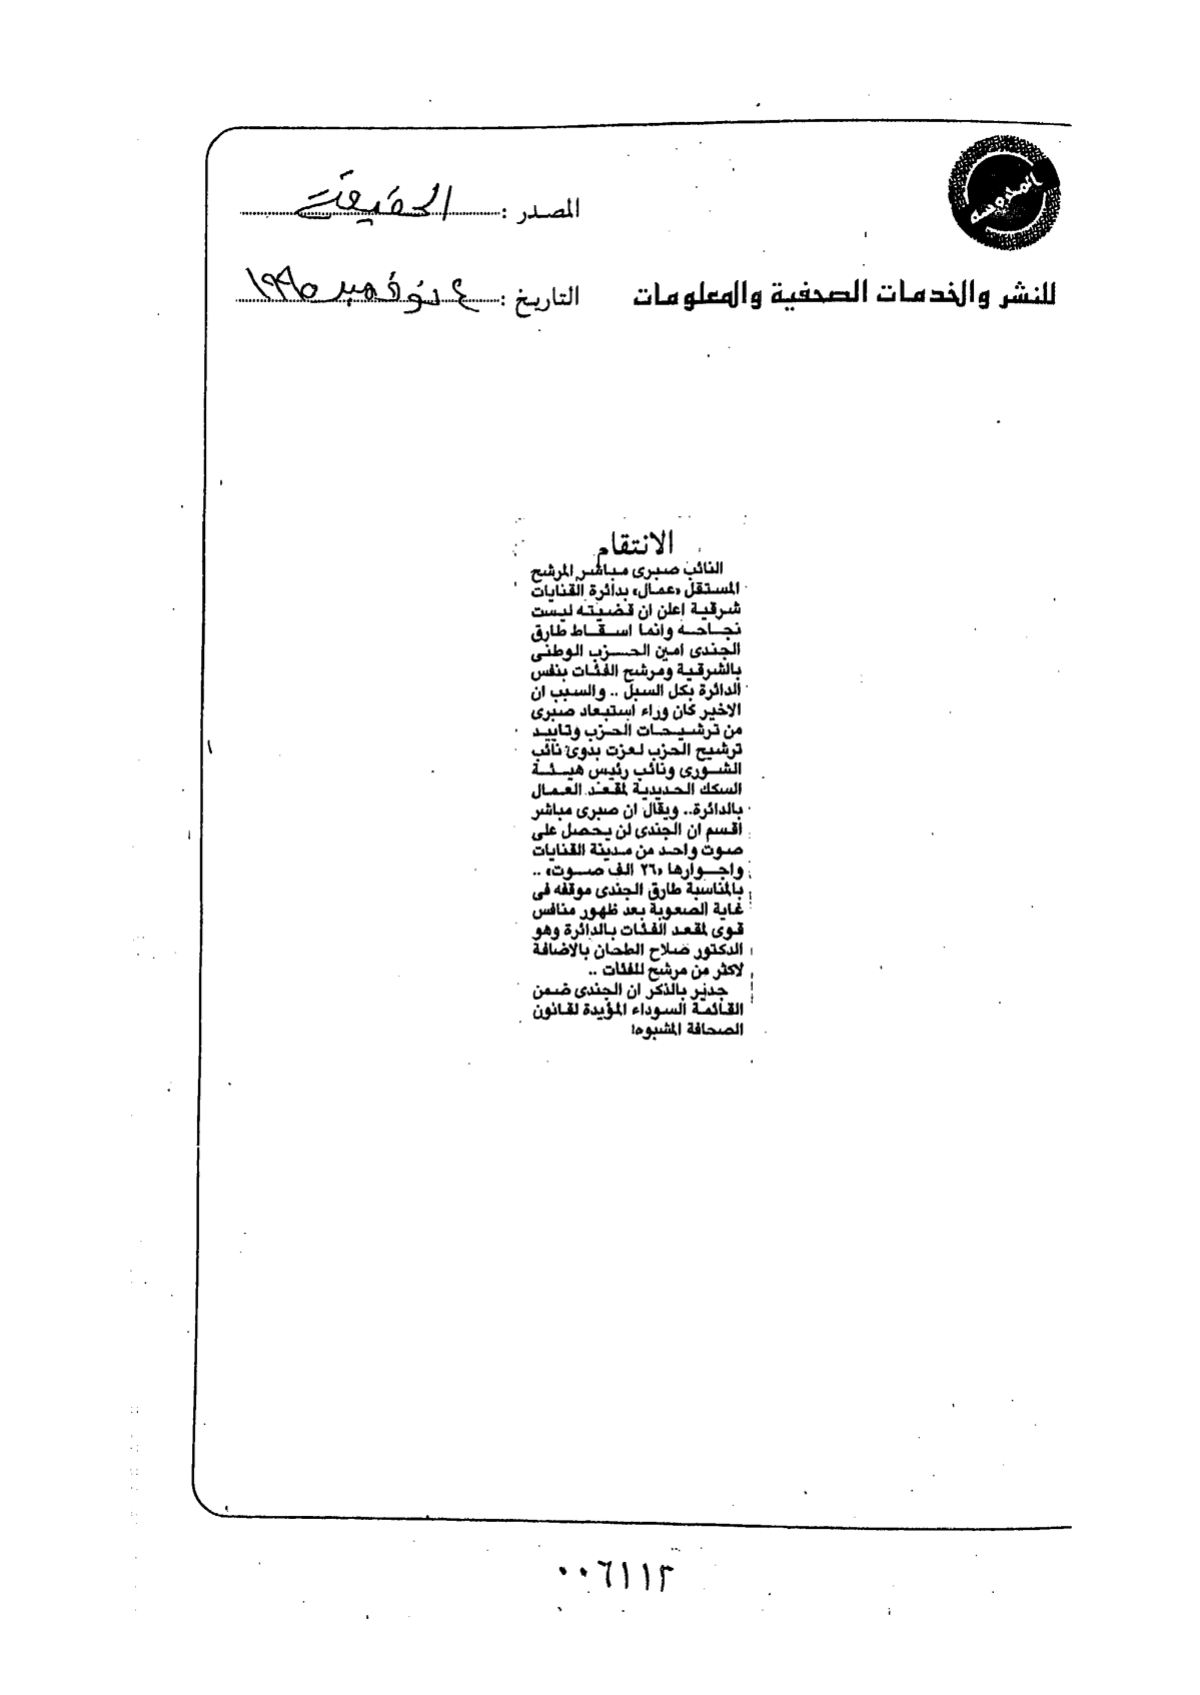 المحروسة
المصدر : الحقيقة
للنشر والخدمات الصحفية والمعلومات
التاريخ : ٤ نوفمبر ١٩٩٥
الانتقام
النائب صبرى مباشر المرشح
المستقل «عمال» بدائرة القنايات
شرقية اعلن ان قضيته ليست
نجاحه وانما اسقاط طارق
الجندى امين الحزب الوطنى
بالشرقية ومرشح الفئات بنفس
الدائرة بكل السبل .. والسبب ان
الاخير كان وراء استبعاد صبرى
من ترشيحات الحزب وتاييد
ترشيح الحزب لعزت بدوى نائب
الشورى ونائب رئيس هيئة
السكك الحديدية لمقعد العمال
بالدائرة.. ويقال ان صبرى مباشر
اقسم ان الجندى لن يحصل على
صوت واحد من مدينة القنايات
واجوارها «٢٦ الف صوت» ..
بالمناسبة طارق الجندى موقفه فى
غاية الصعوبة بعد ظهور منافس
قوى لمقعد الفئات بالدائرة وهو
الدكتور صلاح الطحان بالاضافة
لاكثر من مرشح للفئات ..
جدير بالذكر ان الجندى ضمن
القائمة السوداء المؤيدة لقانون
الصحافة المشبوه!
٠٠٦١١٢